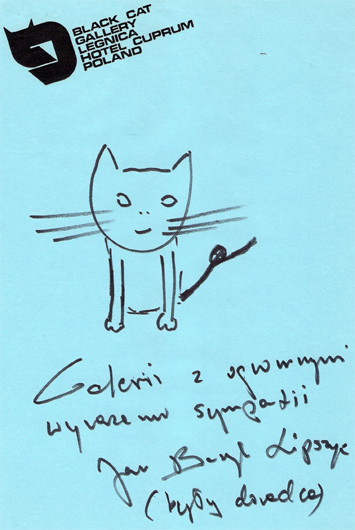 BLACK CAT
GALLERY
LEGNICA
HOTEL CUPRUM
POLAND
Galerii z ogromnymi
wyrazami sympatii
Jan Lipszyc
(były doradca)